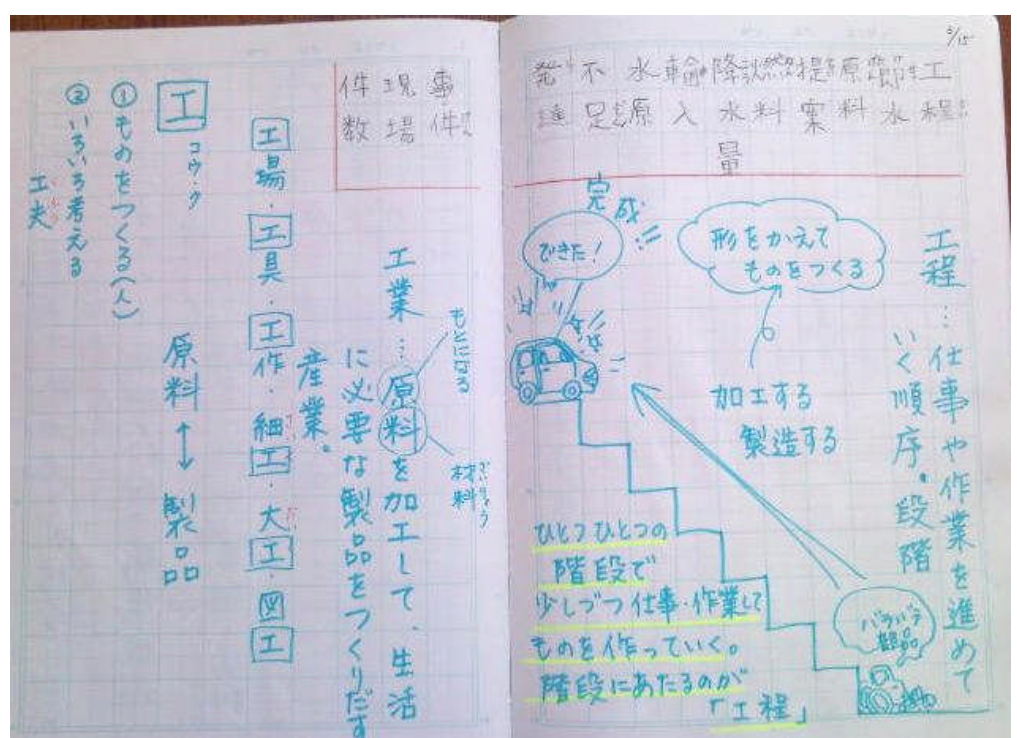 工程
節水
原料
提案
燃料
降水量
輸入
水原
不足
発達
工程…仕事や作業を進めて
いく順序。段階
形をかえて
ものをつくる
加工する
製造する
完成
できた！
バラバラ
部品
ひとつひとつの
階段で
少しづつ仕事・作業して
ものを作っていく。
階段にあたるのが
「工程」
事件
現場
件数
工業…原料を加工して、生活
に必要な製品をつくりだす
産業。
もとになる
材料
ざいりょう
工場・工具・工作・細工・大工・図工
原料↔製品
工
コウ・ク
①ものをつくる(人)
②いろいろ考える
工夫